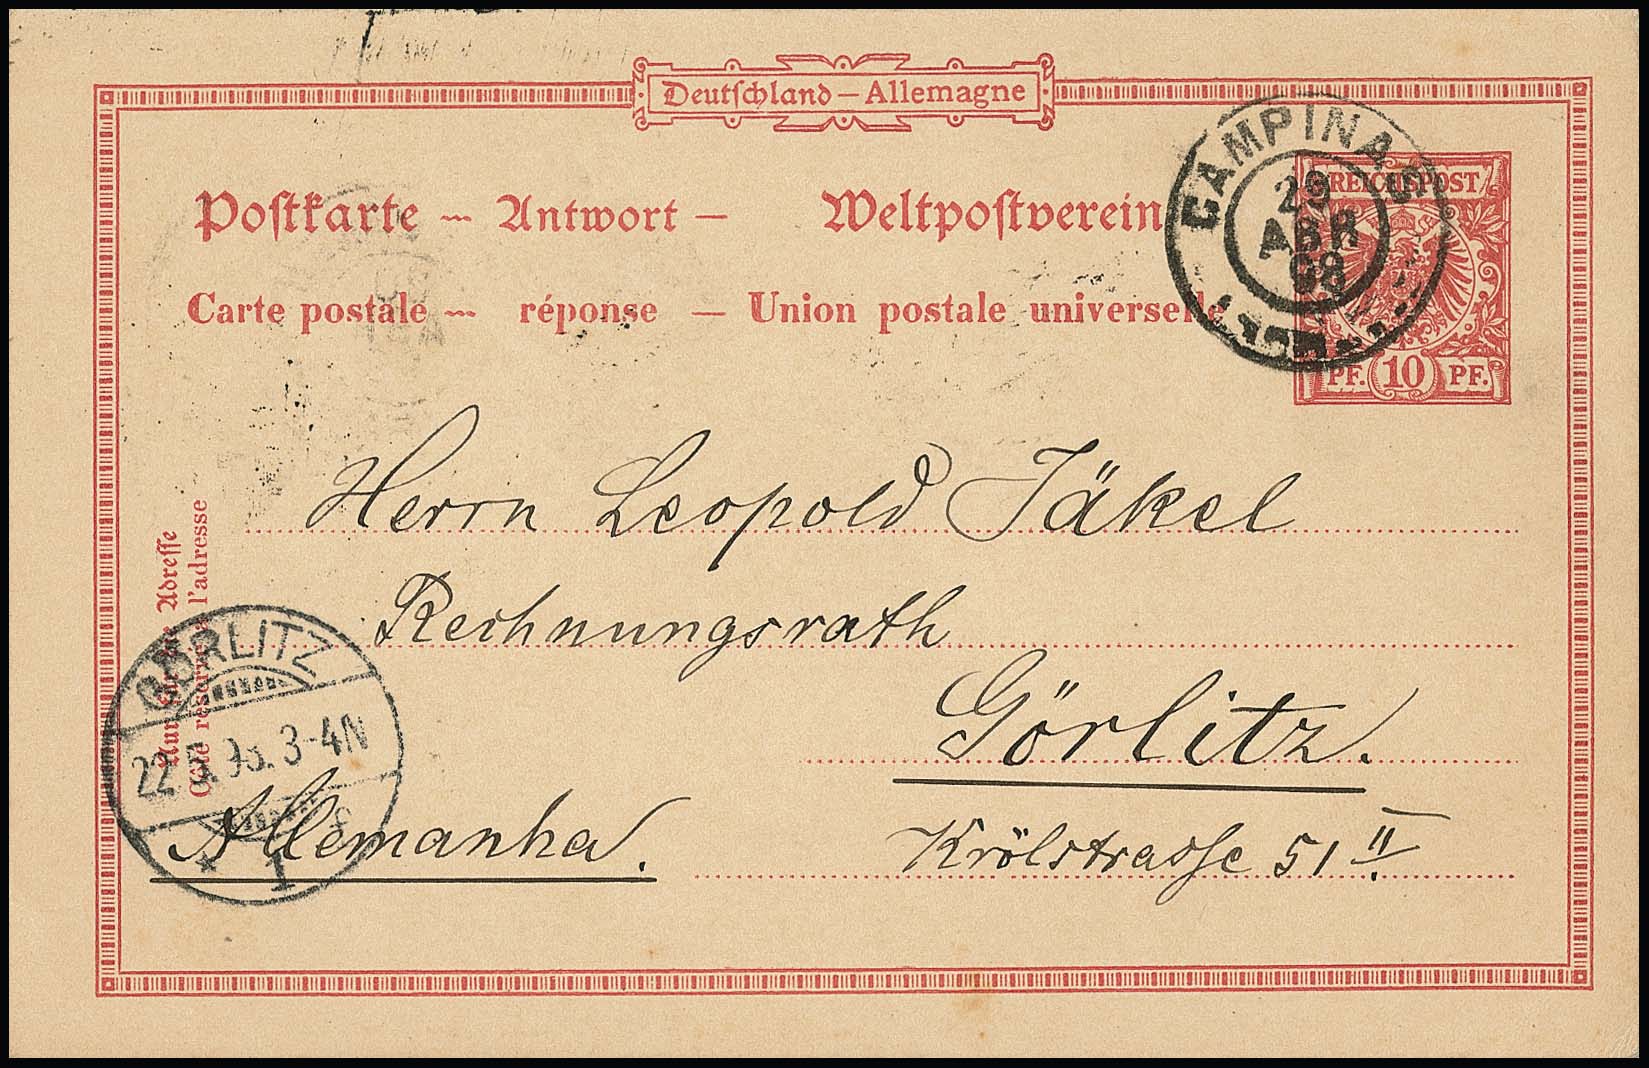 Deutschland – Allemagne
Postkarte — Antwort — Weltpostverein
Carte postale — réponse — Union postale universelle
CAMPINAS
29
ABR
98
REICHSPOST
PF. 10 PF.
Herrn Leopold Jäkel
Rechnungsrath
Görlitz.
Krölstrasse 51 II.
Allemanha.
Nur für die Adresse
Côté réservé à l'adresse
GÖRLITZ
22.5.98. 3-4N
* 1 c